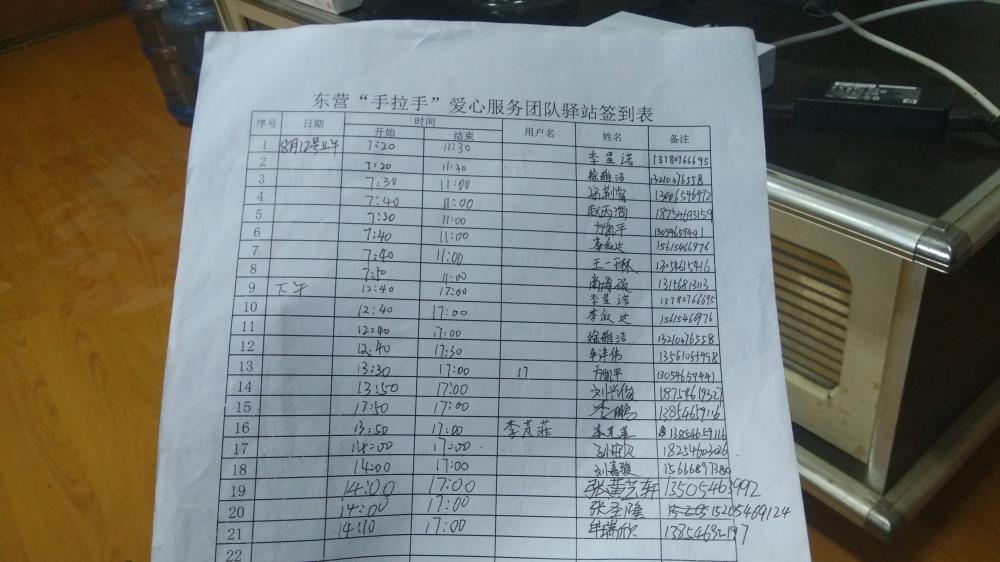 东营“手拉手”爱心服务团队驿站签到表
序号 日期 时间 用户名 姓名 备注
开始 结束
1 8月12号上午 7:20 11:30 李星诺 13780766695
2 7:20 11:30 徐雅洁 13210376558
3 7:30 11:00
4 7:40 11:00 18754693159
5 7:30 11:00 13054659441
6 7:40 11:00 李叙达 15615466976
7 7:40 11:00 王一琳 13054615416
8 7:50 11:00
9 下午 12:40 17:00 李星诺 13780766695
10 12:40 17:00 李叙达 15615466976
11 12:40 17:00 徐雅洁 13210376558
12 12:40 17:30 13561055998
13 13:30 17:00 17 13054659441
14 13:50 17:00 刘兴俊 18754619327
15 13:50 17:00 李鹏 13854659116
16 13:50 17:00 李芃菲 李芃菲 13854659116
17 14:00 17:00 18254603026
18 14:00 17:00 刘嘉骏
19 14:00 17:00 张黄艺轩 13505463992
20 14:00 17:00 张圣隆 15205469124
21 14:10 17:00 牟瑞欣 13854632197
22